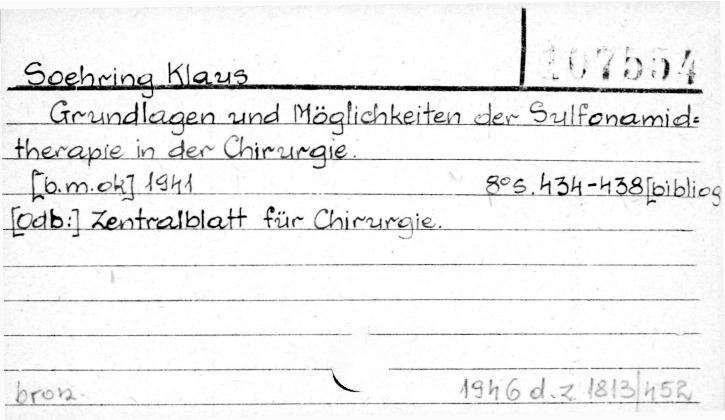 107554
Soehring Klaus
Grundlagen und Möglichkeiten der Sulfonamid=
therapie in der Chirurgie.
[b.m.ok] 1941 8°s. 434-438[bibliog
[Odb:] Zentralblatt für Chirurgie.
brosz. 1946 d.z. 1813/452